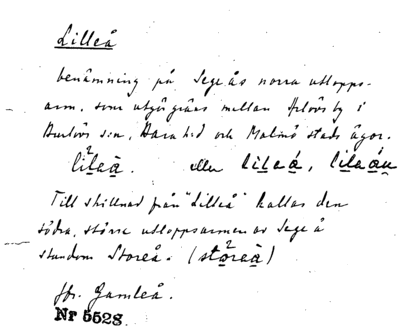 Lilleå
benämning på Segeås norra utlopps-
arm, som utgör gräns mellan Arlövs by i
Burlövs sn, Bara hd och Malmö stads ägor.
li²lea̱. eller lilea̱, lilaån
Till skillnad från "Lilleå" kallas den
södra, större utloppsarmen av Segeå
stundom Storeå. (sto²rea̱)
jfr. Gamleå.
Nr 5528